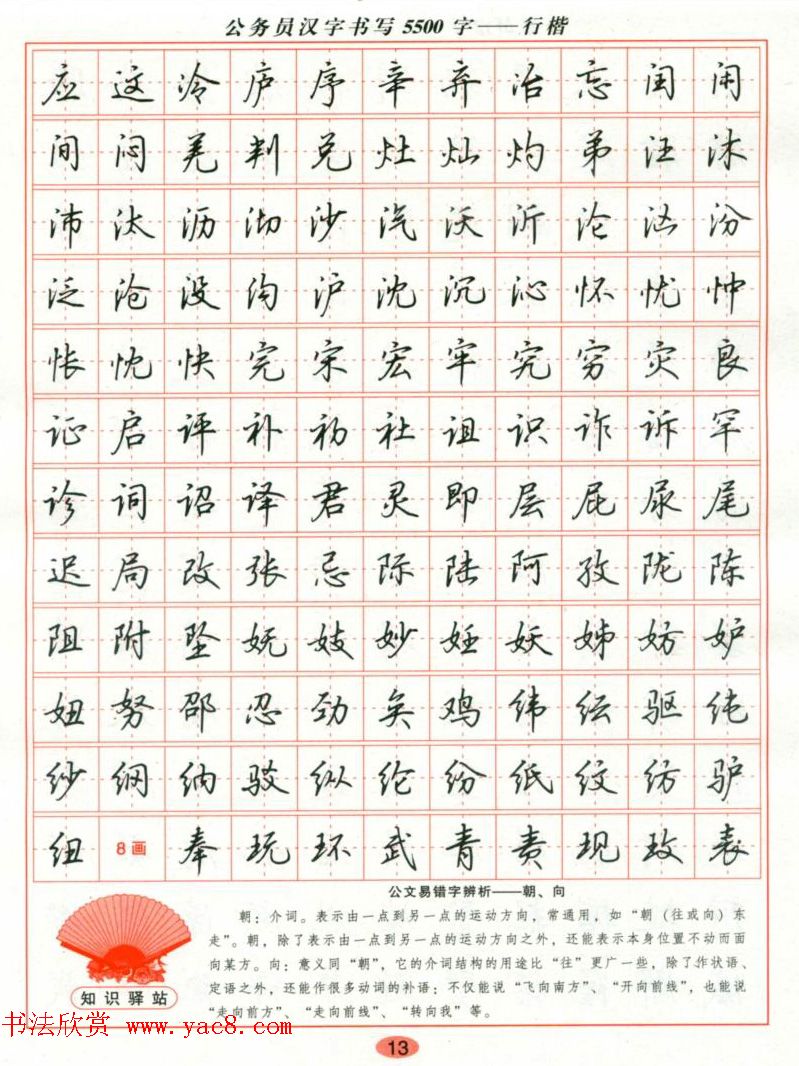 公务员汉字书写5500字——行楷
应 这 冷 庐 序 辛 弃 冶 忘 闰 闲
间 闷 羌 判 兑 灶 灿 灼 弟 汪 沐
沛 汰 沥 沏 沙 汽 沃 沂 沦 汹 汾
泛 沧 没 沟 沪 沈 沉 沁 怀 忧 忡
怅 忱 快 完 宋 宏 牢 究 穷 灾 良
证 启 评 补 初 社 诅 识 诈 诉 罕
诊 词 诏 译 君 灵 即 层 屁 尿 尾
迟 局 改 张 忌 际 陆 阿 孜 陇 陈
阻 附 坠 妩 妓 妙 妊 妖 姊 妨 妒
妞 努 邵 忍 劲 矣 鸡 纬 纭 驱 纯
纱 纲 纳 驳 纵 纶 纷 纸 纹 纺 驴
纽 8画 奉 玩 环 武 青 责 现 玫 表
公文易错字辨析——朝、向
朝：介词。表示由一点到另一点的运动方向，常通用，如“朝（往或向）东
走”。朝，除了表示由一点到另一点的运动方向之外，还能表示本身位置不动而面
向某方。向：意义同“朝”，它的介词结构的用途比“往”更广一些，除了作状语、
定语之外，还能作很多动词的补语：不仅能说“飞向南方”、“开向前线”，也能说
“走向前方”、“走向前线”、“转向我”等。
知识驿站
书法欣赏 www.yac8.com
13